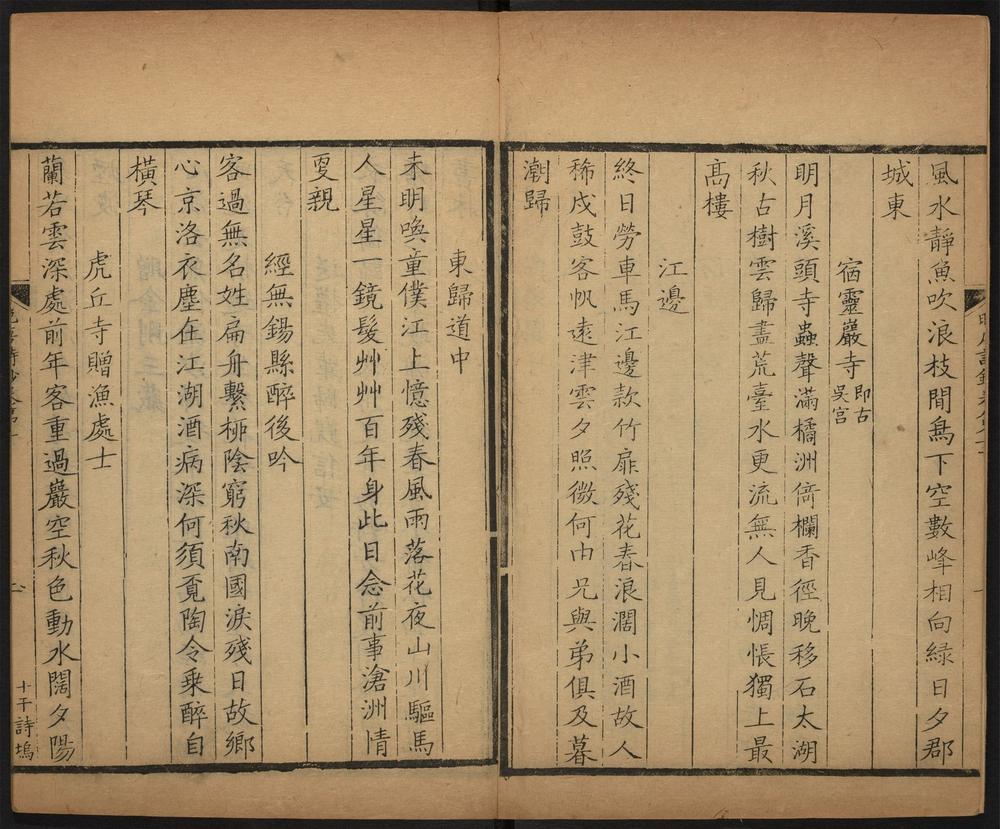 風水靜魚吹浪枝間鳥下空數峰相向綠日夕郡
城東
宿靈巖寺即古吳宮
明月溪頭寺蟲聲滿橘洲倚欄香徑晚移石太湖
秋古樹雲歸盡荒臺水更流無人見惆悵獨上最
高樓
江邊
終日勞車馬江邊款竹扉殘花春浪濶小酒故人
稀戍鼓客帆遠津雲夕照微何由兄與弟俱及暮
潮歸
東歸道中
未明喚童僕江上憶殘春風雨落花夜山川驅馬
人星星一鏡髮艸艸百年身此日念前事滄洲情
更親
經無錫縣醉後吟
客過無名姓扁舟繫柳陰窮秋南國淚殘日故鄉
心京洛衣塵在江湖酒病深何須覓陶令乘醉自
橫琴
虎丘寺贈漁處士
蘭若雲深處前年客重過巖空秋色動水闊夕陽
十干詩塢